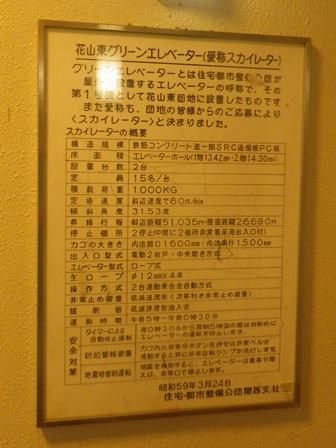 花山東グリーンエレベーター(愛称スカイレーター)
グリーンエレベーターとは住宅都市整備公団が
屋外に設置するエレベーターの呼称で、その
第1号機として花山東団地に設置したものです
また愛称も、団地の皆様からのご応募により
〈スカイレーター〉と決まりました。
スカイレーターの概要
構造規模 鉄筋コンクリート造一部SRC造屋根PC板
床面積 エレベーターホール(1階13.42㎡・2階14.30㎡)
設置台数 2台
定員 15名/台
積載荷重 1.000KG
定格速度 斜辺速度で60m/分
傾斜角度 31.53度
昇降行程 斜辺距離51.035m・垂直距離26.690m
停止個所 2停止
カゴの大きさ 内法間口1600mm・内法奥行1.500mm
出入口型式 電動2枚戸・中央開き方式
エレベーター型式 ロープ式
主ロープ ø12mm×4本
操作方式 2台連動乗合全自動方式
非常止め装置 低減速度形(次第利き非常止め装置)
緩衝器 低減速度形油入式
運転時間 午前5時〜午前0時30分
安全対策
タイマーによる自動停止運転 夜0時30分から翌朝5時迄の間は自動的にエレベーターの運転を停止します。
防犯警報装置
地震時管制運転
昭和59年3月24日
住宅・都市整備公団関西支社